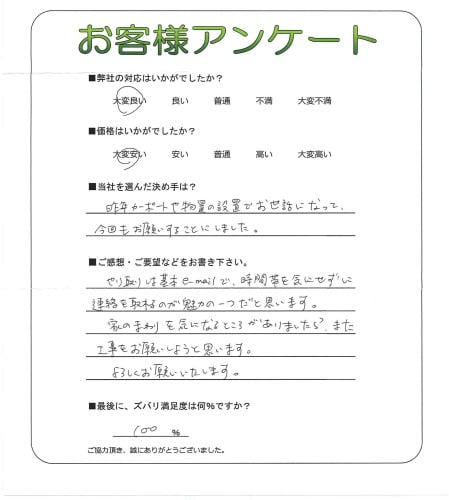 お客様アンケート
■弊社の対応はいかがでしたか？
大変良い 良い 普通 不満 大変不満
■価格はいかがでしたか？
大変安い 安い 普通 高い 大変高い
■当社を選んだ決め手は？
昨年カーポートや物置の設置でお世話になって、
今回もお願いすることにしました。
■ご感想・ご要望などをお書き下さい。
やり取りは基本e-mailで、時間帯を気にせずに
連絡を取れるのが魅力の一つだと思います。
家のまわりを気になるところがありましたら、また
工事をお願いしようと思います。
よろしくお願いいたします。
■最後に、ズバリ満足度は何％ですか？
100 %
ご協力頂き、誠にありがとうございました。